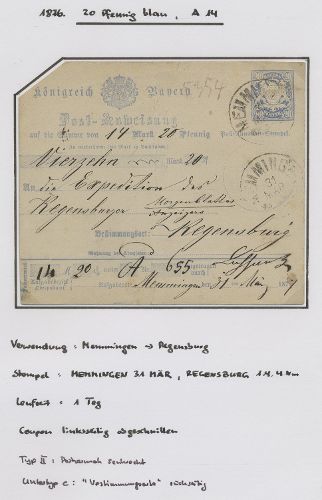 1876. 20 Pfennig blau, A 14
5354
Königreich Bayern
Post-Anweisung
auf die Summe von 14 Mark 20 Pfennig
Vierzehn Mark 20
An die Expedition des
Regensburger Morgenblattes
Anzeigers
Bestimmungsort: Regensburg
MEMMINGEN
31
14 20 A 655
Memmingen 31 März
Verwendung: Memmingen → Regensburg
Stempel: MEMMINGEN 31 MÄR, REGENSBURG 1 1, 4 Nm
Laufzeit: 1 Tag
Coupon linksseitig abgeschnitten
Typ II: Postanweisung
Untertype c: rückseitig